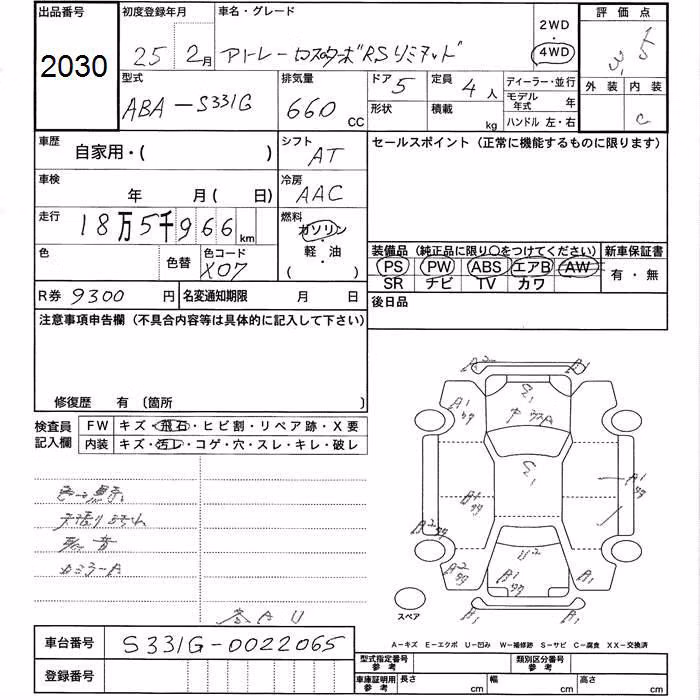 出品番号
2030
初度登録年月
25 2月
車名・グレード
アトレー カスタムターボ RSリミテッド
2WD
・
4WD
評価点
3.5
外装 内装
C
型式
ABA-S331G
排気量
660 CC
ドア 5
形状
定員 4人
積載 kg
ディーラー・並行
モデル年式 年
ハンドル 左・右
車歴
自家用・( )
シフト
AT
セールスポイント (正常に機能するものに限ります)
車検
年 月 ( 日)
冷房
AAC
走行
18万5千966km
燃料
ガソリン
・
軽・油
( )
色
色替
色コード
X07
装備品 (純正品に限り○をつけてください)
PS PW ABS エアB AW
SR ナビ TV カワ
新車保証書
有・無
R券 9300円
名変通知期限 月 日
後日品
注意事項申告欄 (不具合内容等は具体的に記入して下さい)
修復歴 有 〔箇所
検査員記入欄
FW キズ・飛石・ヒビ割・リペア跡・X要
内装 キズ・汚レ・コゲ・穴・スレ・キレ・破レ
A2 A1
U1
A1
タタ
中
A1
タタ
U1
A1
タタ
A2
タタ
U2
A2
タタ
A1
タタ
A1
A1
スペア
A-キズ E-エクボ U-凹み W-補修跡 S-サビ C-腐食 XX-交換済
車台番号 S331G-0022065
登録番号
型式指定番号 参考
類別区分番号 参考
車庫証明用 参考 長さ cm 幅 cm 高さ cm